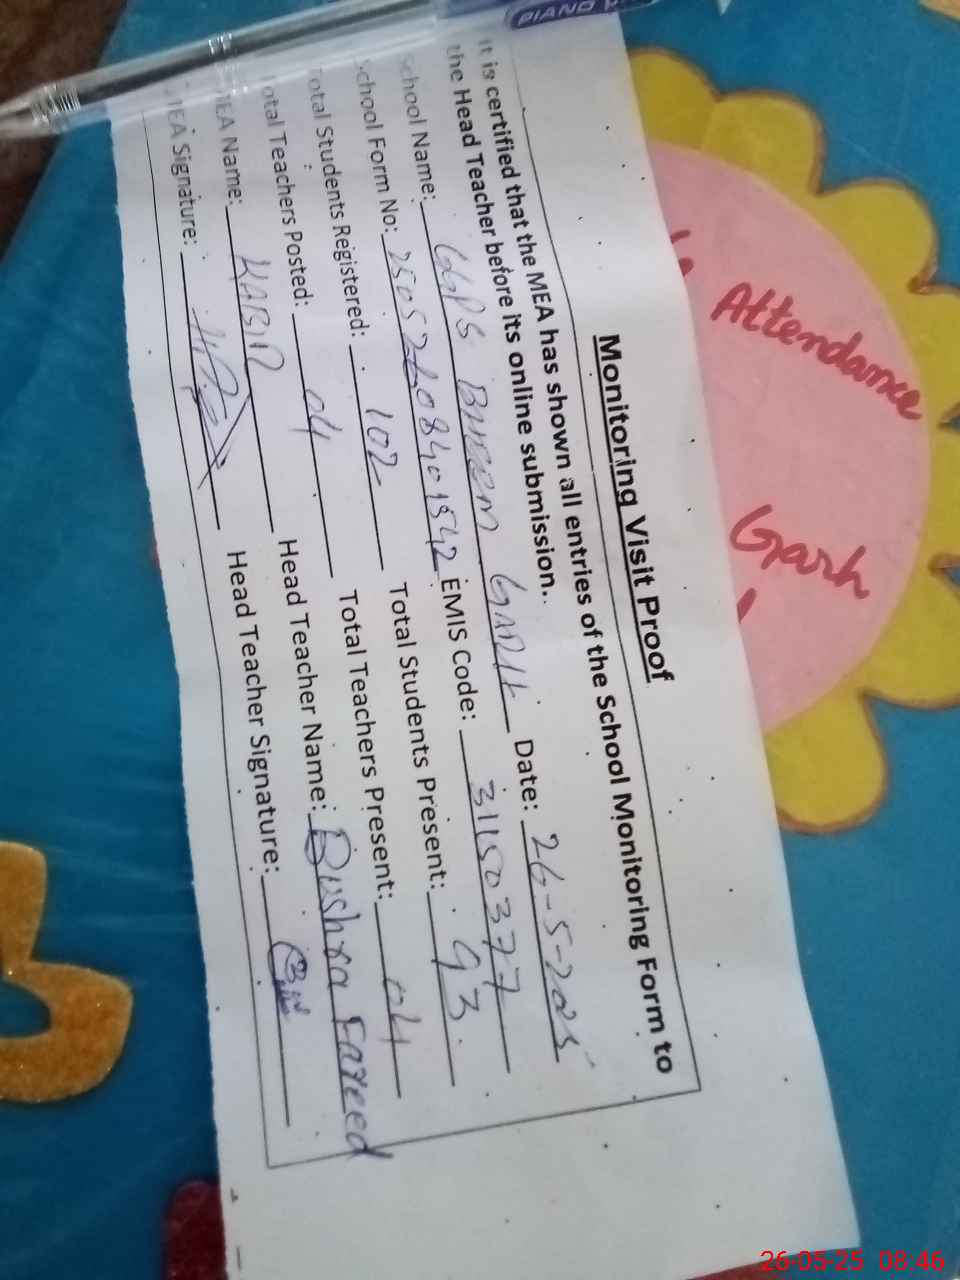 PIANO
Monitoring Visit Proof
It is certified that the MEA has shown all entries of the School Monitoring Form to
the Head Teacher before its online submission.
School Name: GGPS BHEEM GARH Date: 26-5-2025
School Form No: 2505 EMIS Code: 31150377
Total Students Registered: 102 Total Students Present: 93
Total Teachers Posted: 04 Total Teachers Present: 04
MEA Name: KABIR Head Teacher Name: Bushra Fareed
MEA Signature: Head Teacher Signature:
Attendance
Garh
26-05-25 08:46